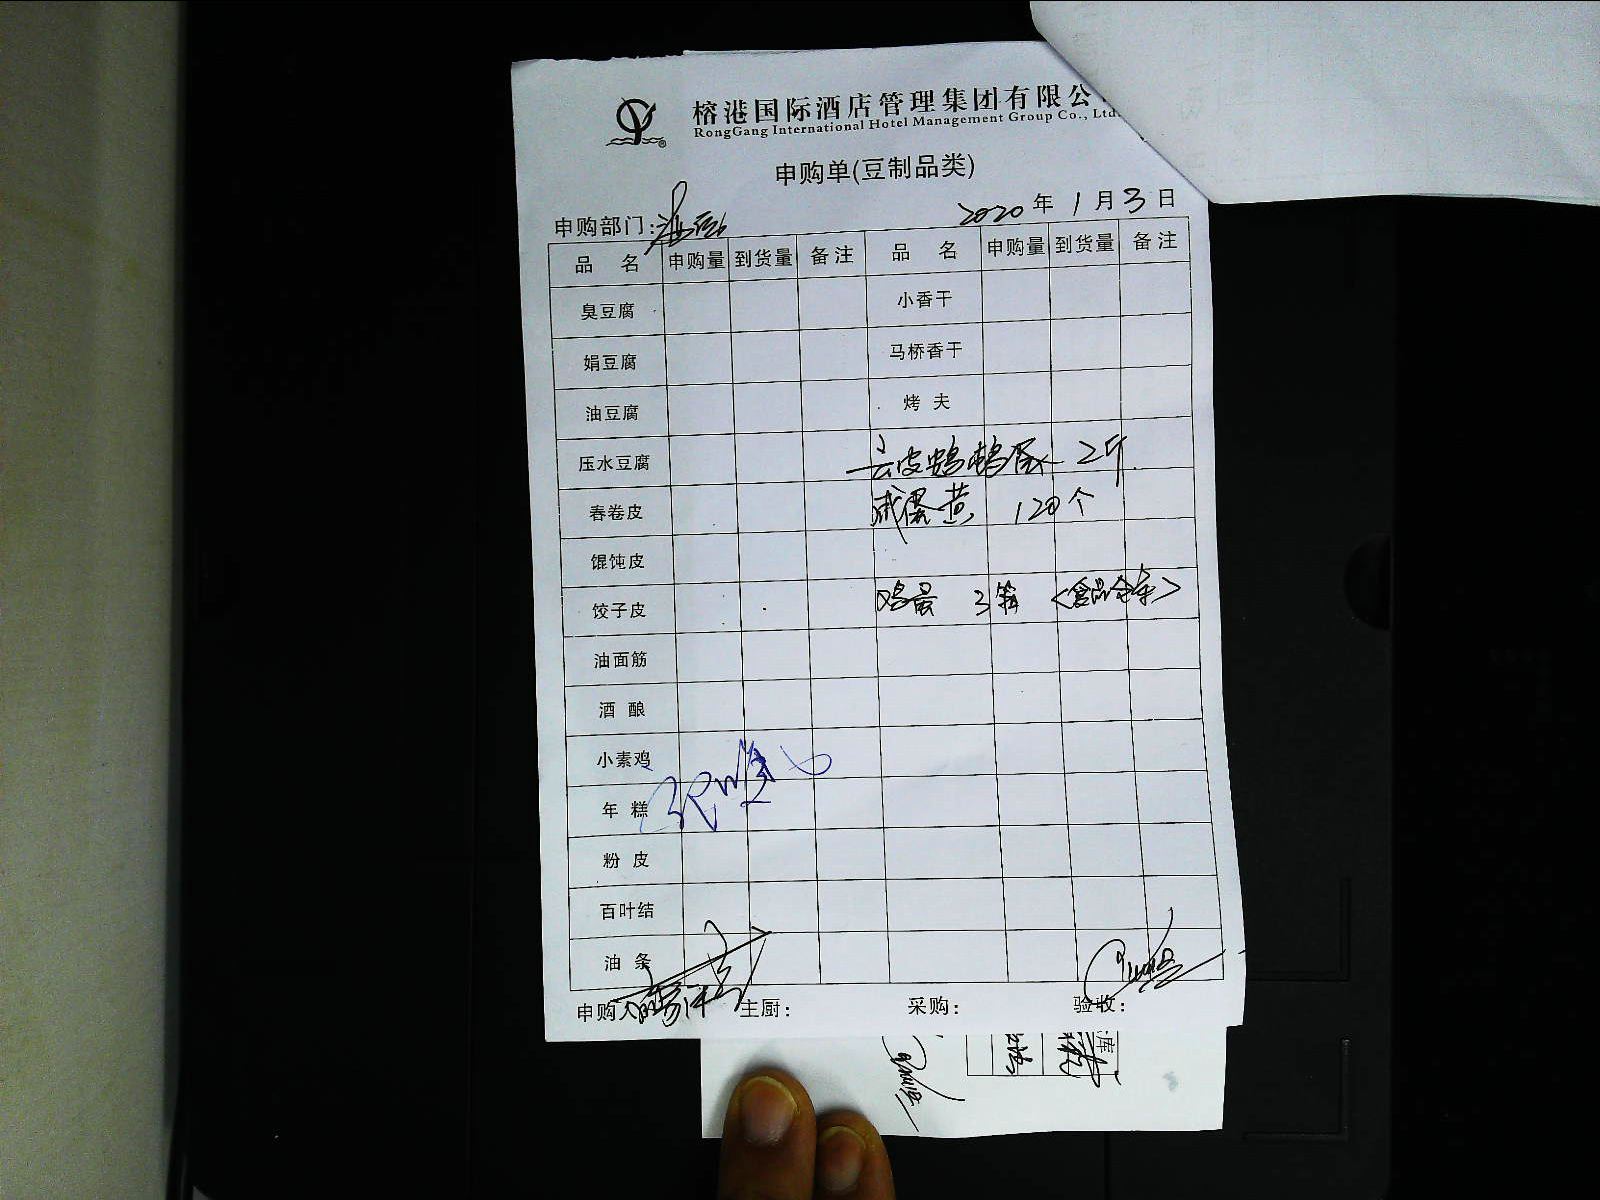 榕港国际酒店管理集团有限公
RongGang International Hotel Management Group Co., Ltd.
申购单(豆制品类)
申购部门: 2020年1月3日
品名 申购量 到货量 备注 品名 申购量 到货量 备注
臭豆腐 小香干
娟豆腐 马桥香干
油豆腐 烤夫
压水豆腐 去皮鹌鹑蛋 2斤
春卷皮 咸蛋黄 120个
馄饨皮
饺子皮 鸡蛋 3箱 <食品仓库>
油面筋
酒酿
小素鸡
年糕
粉皮
百叶结
油条
申购人 主厨: 采购: 验收:
库